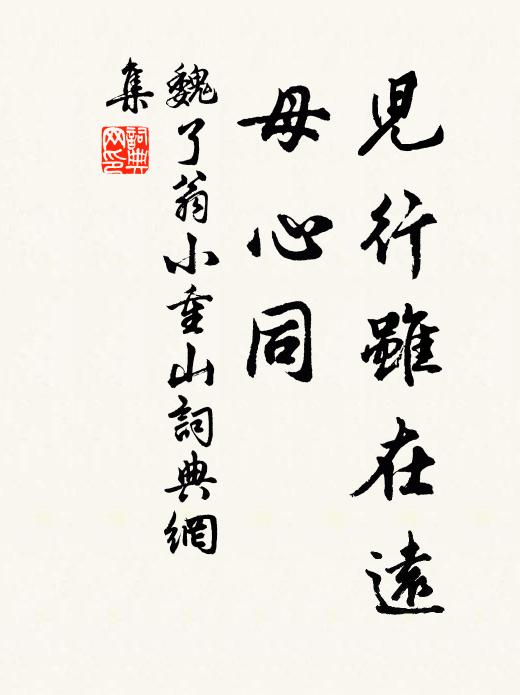 兒行雖在遠
母心同
魏了翁小重山詞典網
集
詞典網印